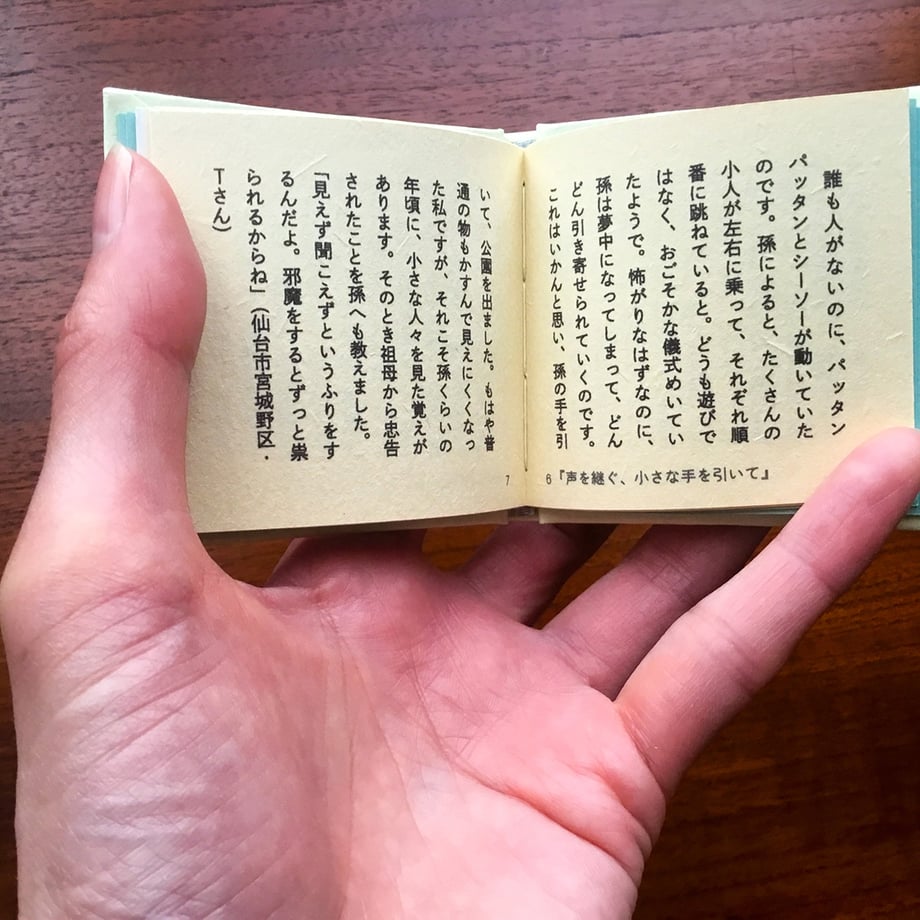 誰も人がないのに、パッタン
パッタンとシーソーが動いていた
のです。孫によると、たくさんの
小人が左右に乗って、それぞれ順
番に跳ねていると。どうも遊びで
はなく、おごそかな儀式めいてい
たようで。怖がりなはずなのに、
孫は夢中になってしまって、どん
どん引き寄せられていくのです。
これはいかんと思い、孫の手を引
6『声を継ぐ、小さな手を引いて』
いて、公園を出ました。もはや普
通の物もかすんで見えにくくなっ
た私ですが、それこそ孫くらいの
年頃に、小さな人々を見た覚えが
あります。そのとき祖母から忠告
されたことを孫へも教えました。
「見えず聞こえずというふりをす
るんだよ。邪魔をするとずっと祟
られるからね」(仙台市宮城野区・
Tさん)
7